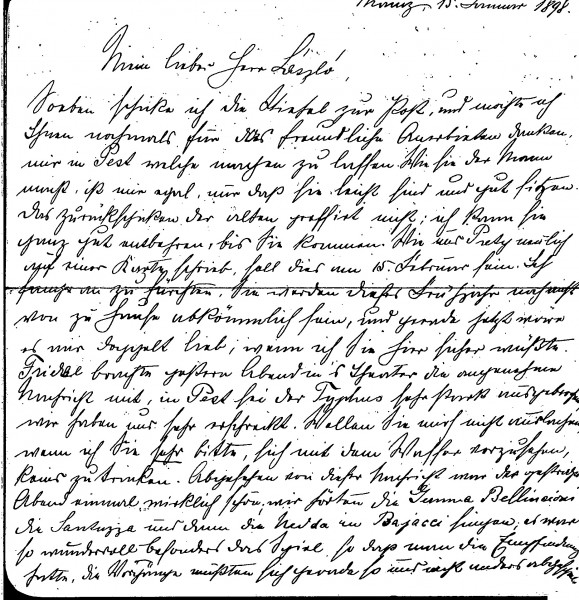 Mainz, 15. Januar 1898.
Mein lieber Herr László,
Soeben schicke ich die Stiefel zur Post, und möchte ich
Ihnen nochmals für das freundliche Anerbieten danken,
mir in Pest welche machen zu lassen. Wie sie der Mann
macht, ist mir egal, nur daß sie leicht sind und gut sitzen.
Das Zurückschicken der alten pressirt nicht; ich kann sie
ganz gut entbehren, bis Sie kommen. Wie uns neulich
auf einer Karte schrieb, soll dies am 15. Februar sein. Ich
fange an zu fürchten, Sie werden dieses Frühjahr noch nicht
von zu Hause abkömmlich sein, und gerade jetzt wäre
es mir doppelt lieb, wenn ich Sie hier sicher wüßte.
brachte gestern Abend in's Theater die angenehme
Nachricht mit, in Pest sei der Typhus sehr stark ausgebrochen
wir haben uns sehr erschreckt. Wollen Sie mich nicht auslachen
wenn ich Sie sehr bitte, sich mit dem Wasser vorzusehen,
keins zu trinken. Abgesehen von dieser Nachricht war der gestrige
Abend einmal wirklich schön, wir hörten die Gemma Bellincioni
die Santuzza und dann die Nedda in Bajacci singen, es war
so wundervoll besonders das Spiel, so daß man die Empfindung
hatte, die Vorgänge müßten sich gerade so und nicht anders